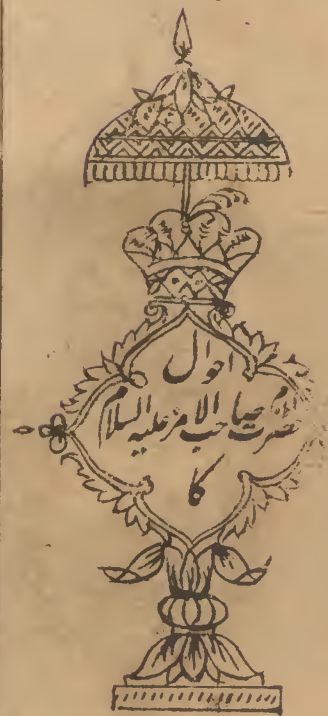 احوال
حضرت صاحب الامر علیہ السلام
کا